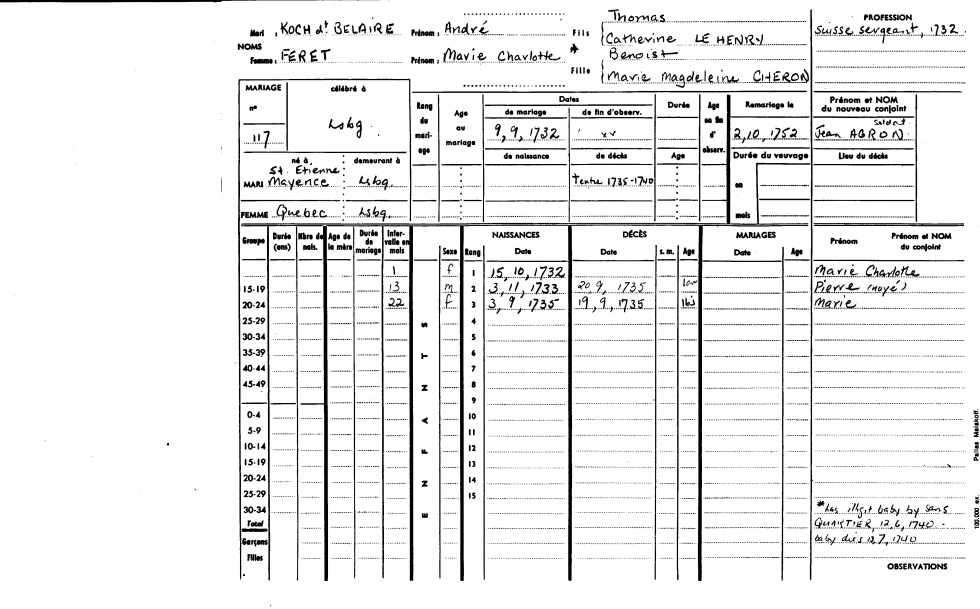 Thomas
Mari : KOCH dt BELAIRE Prénom : André Fils Catherine LE HENRY
NOMS
Femme : FERET Prénom : Marie Charlotte * Fille Benoist
Marie Magdeleine CHERON
PROFESSION
Suisse sergeant, 1732.
MARIAGE célébré à
n°
117 Lsbg.
Rang du mariage
Age au mariage
Dates
de mariage de fin d'observ.
9, 9, 1732 xx
de naissance de décès
† entre 1735-1740
Durée
Age
Age en fin d'observ.
Remariage le
2, 10, 1752
Durée du veuvage
en
mois
Prénom et NOM du nouveau conjoint
soldat
Jean AGRON.
Lieu du décès
né à, demeurant à
St. Etienne
MARI Mayence Lsbg.
FEMME Quebec Lsbg.
Groupe Durée (ans) Nbre de nais. Age de la mère Durée de mariage Intervalle en mois Sexe Rang NAISSANCES Date DÉCÈS Date s. m. Age MARIAGES Date Age Prénom Prénom et NOM du conjoint
ENFANTS
1 f 1 15, 10, 1732 Marie Charlotte
15-19 13 m 2 3, 11, 1733 20 9, 1735 1an Pierre (noyé)
20-24 22 f 3 3, 9, 1735 19, 9, 1735 16j Marie
25-29 4
30-34 5
35-39 6
40-44 7
45-49 8
9
0-4 10
5-9 11
10-14 12
15-19 13
20-24 14
25-29 15
30-34
Total
Garçons
Filles
*has illegit baby by sans
QUARTIER, 12, 6, 1740 -
baby dies 12, 7, 1740
OBSERVATIONS
100.000 ex. Pairies Malakoff.